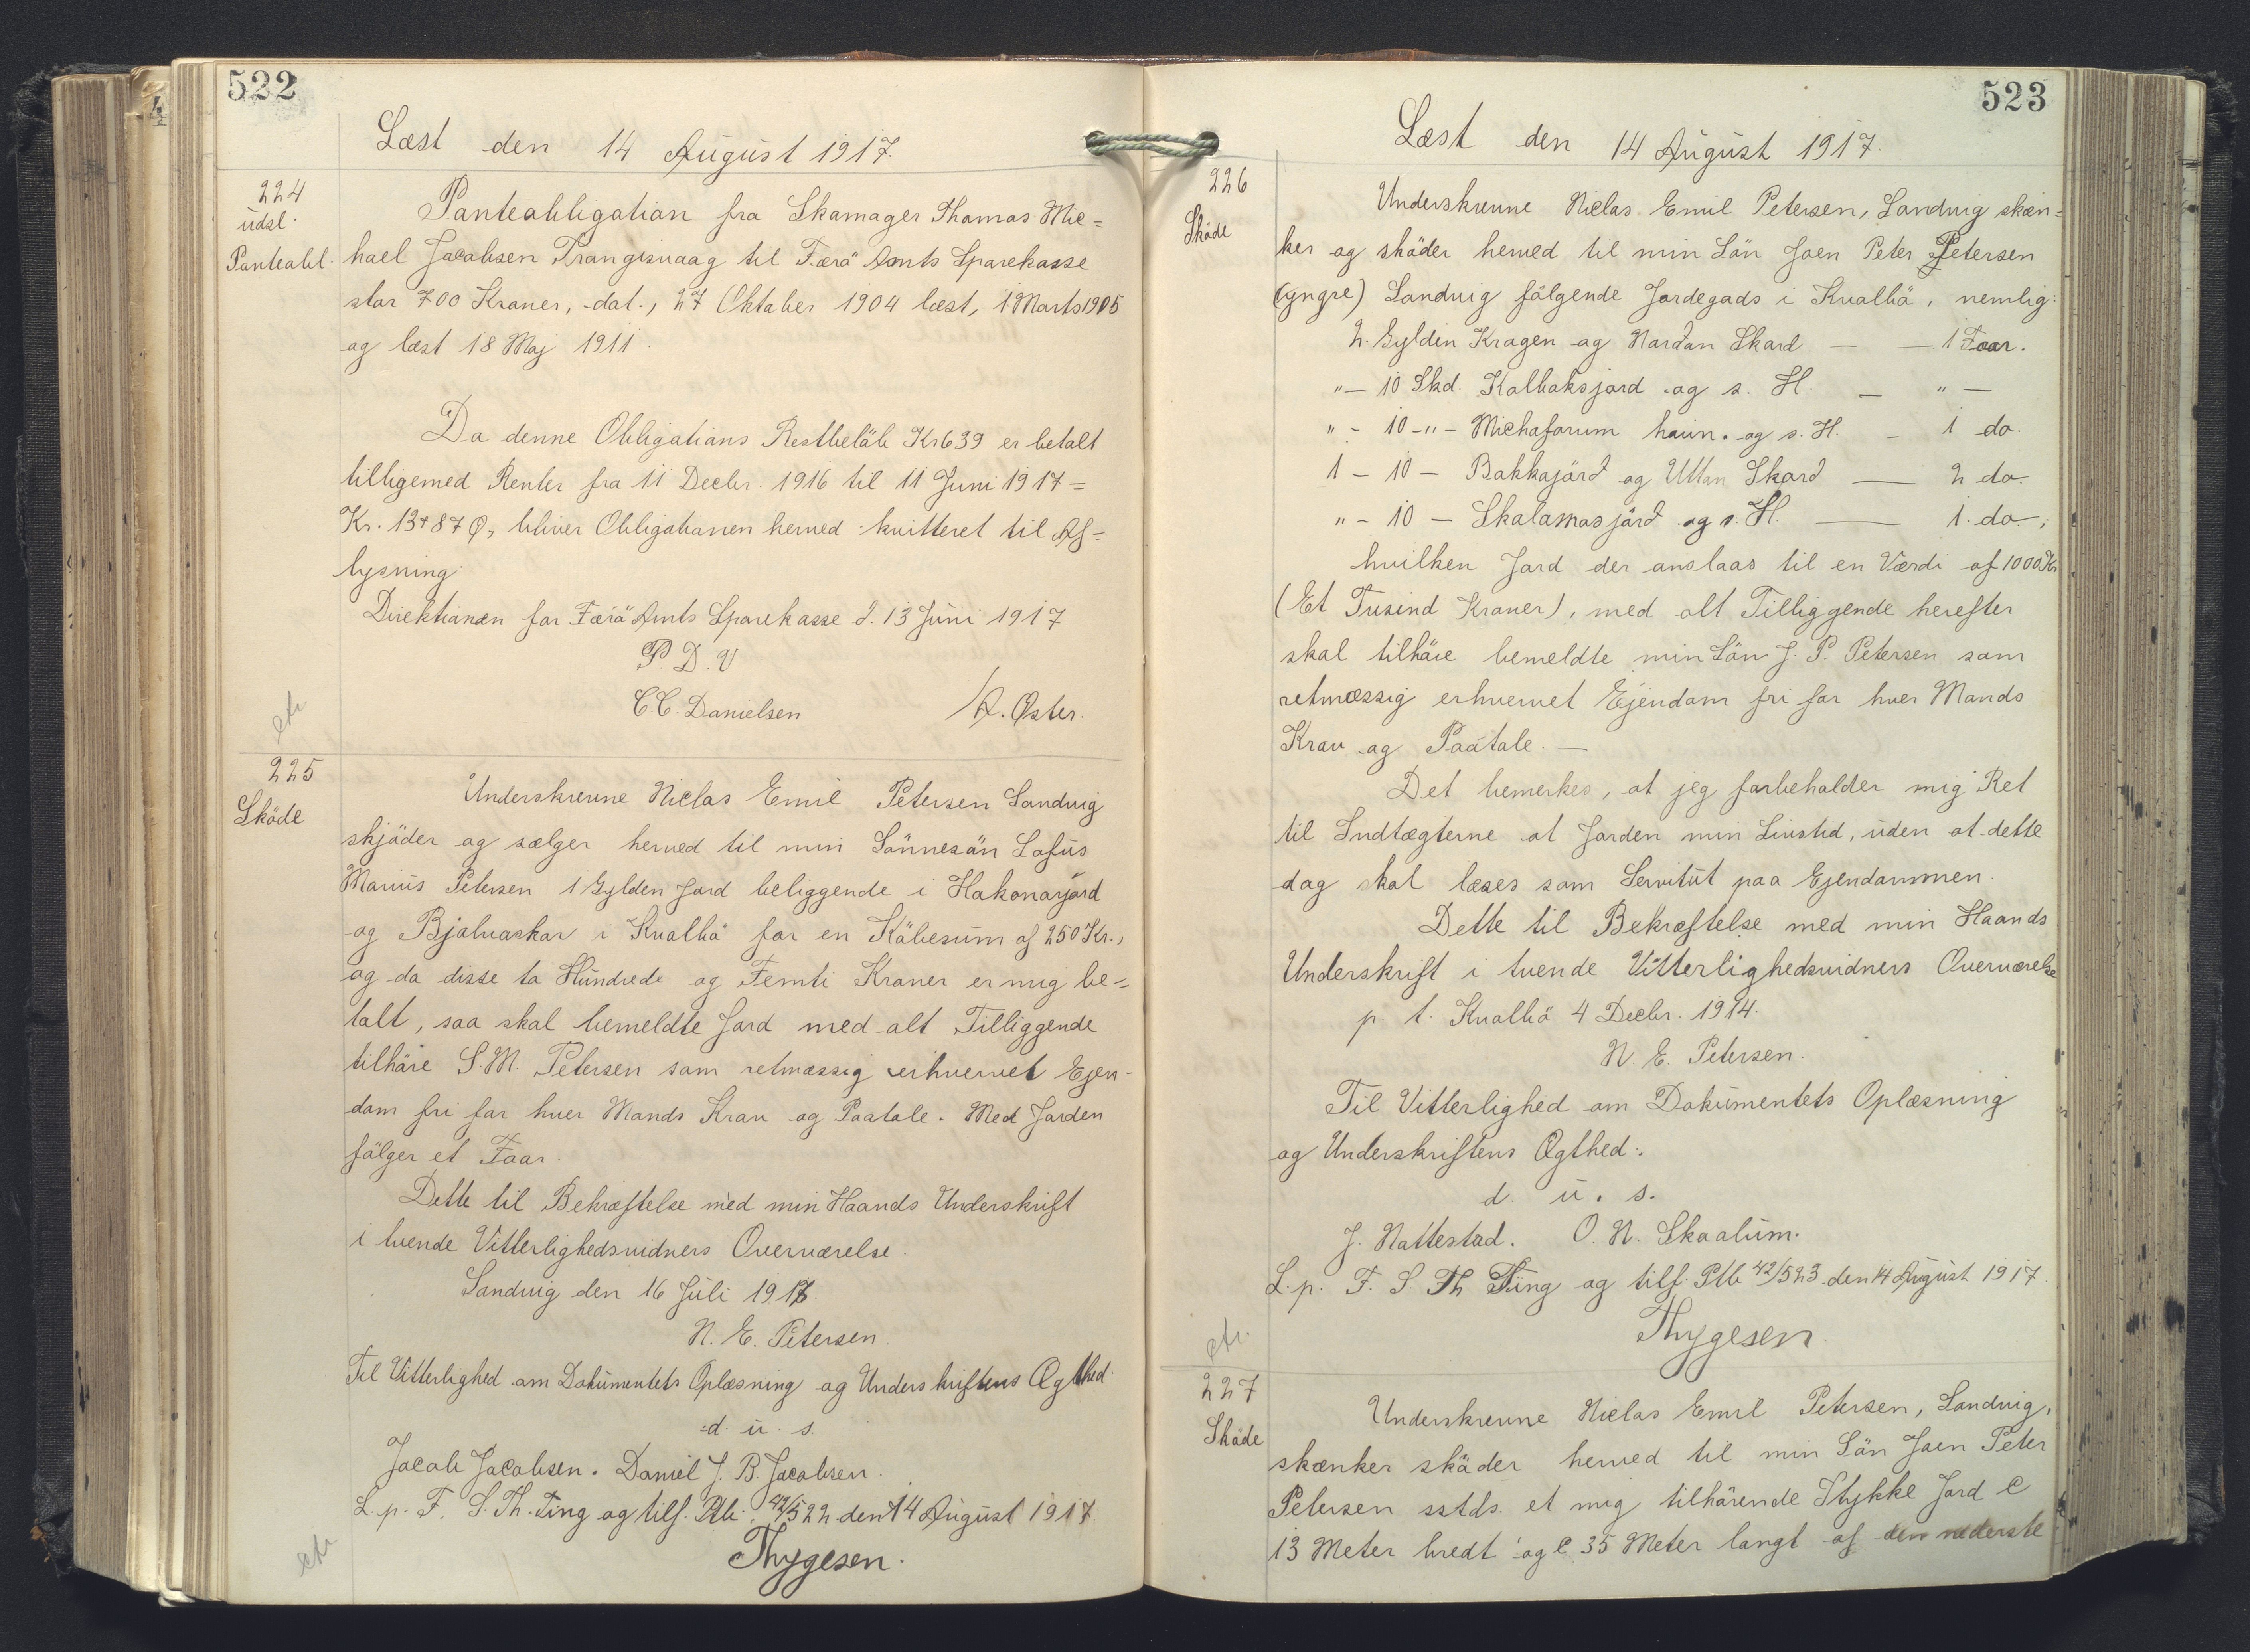 522
Læst den 14 August 1917.
224
udsl.
Panteobl.
Panteobligation fra Skomager Thomas Mic=
hael Jacobsen Trangisvaag til Færø Amts Sparekasse
stor 700 Kroner, dat., 27 Oktober 1904 læst, 1 Marts 1905
og læst 18 Maj 1911.
Da denne Obligations Restbeløb Kr 639 er betalt
tilligemed Renter fra 11 Decbr. 1916 til 11 Juni 1917 =
Kr. 13 + 87 Ø, bliver Obligationen herved kvitteret til Af=
lysning.
Direktionen for Færø Amts Sparekasse d. 13 Juni 1917
P. D. V
C. C. Danielsen / A. Øster.
ctr
225
Skøde
Underskrevne Niclas Emil Petersen Sandvig
skjøder og sælger herved til min Sønnesøn Sofus
Marius Petersen 1 Gylden Jord beliggende i Hakonarjørd
og Bjalvaskor i Kvalbø for en Købesum af 250 Kr.,
og da disse to Hundrede og Femti Kroner er mig be=
talt, saa skal bemeldte Jord med alt Tilliggende
tilhøre S. M. Petersen som retmæssig erhvervet Ejen-
dom fri for hver Mands Krav og Paatale. Med Jorden
følger et Faar.
Dette til Bekræftelse med min Haands Underskrift
i tvende Vitterlighedsvidners Overværelse.
Sandvig den 16 Juli 1917.
N. E. Petersen.
Til Vitterlighed om Dokumentets Oplæsning og Underskriftens Ægthed.
d. u. s.
Jacob Jacobsen. Daniel J. B. Jacobsen.
L. p. F. S. Th. Ting og tilf. Ptb. 42/522 den 14 August 1917.
Thygesen.
ctr
523
Læst den 14 August 1917.
226
Skøde
Underskrevne Niclas Emil Petersen, Sandvig skæn=
ker og skøder herved til min Søn Joen Peter Petersen
(yngre) Sandvig følgende Jordegods i Kvalbø, nemlig:
2. Gylden Kragen og Nordan Skard — — 1 Faar.
" — 10 Skd. Kolbaksjord og s. H. — " —
" - 10 -"- Michaforum hain. og s. H. - 1 do.
1 - 10 - Bakkajörd og Uttan Skard — 2 do.
" - 10 — Skalamasjörd og s. H. — 1. do.;
hvilken Jord der anslaas til en Værdi af 1000 Kr
(Et Tusind Kroner), med alt Tilliggende herefter
skal tilhøre bemeldte min Søn J. P. Petersen som
retmæssig erhvervet Ejendom fri for hver Mands
Krav og Paatale. —
Det bemerkes, at jeg forbeholder mig Ret
til Indtægterne at Jorden min Livstid, uden at dette
dog skal læses som Servitut paa Ejendommen.
Dette til Bekræftelse med min Haands
Underskrift i tvende Vitterlighedsvidners Overværelse
p. t. Kvalbø 4 Decbr. 1914.
N. E. Petersen.
Til Vitterlighed om Dokumentets Oplæsning
og Underskriftens Ægthed:
d. u. s.
J. Nattestad. O. N. Skaalum.
L. p. F. S. Th Ting og tilf. Ptb 42/523 den 14 August 1917.
Thygesen.
ctr.
227
Skøde
Underskrevne Niclas Emil Petersen, Sandvig,
skænker skøder herved til min Søn Joen Peter
Petersen sstds. et mig tilhørende Stykke Jord c
13 Meter bredt og c 35 Meter langt af den nederste